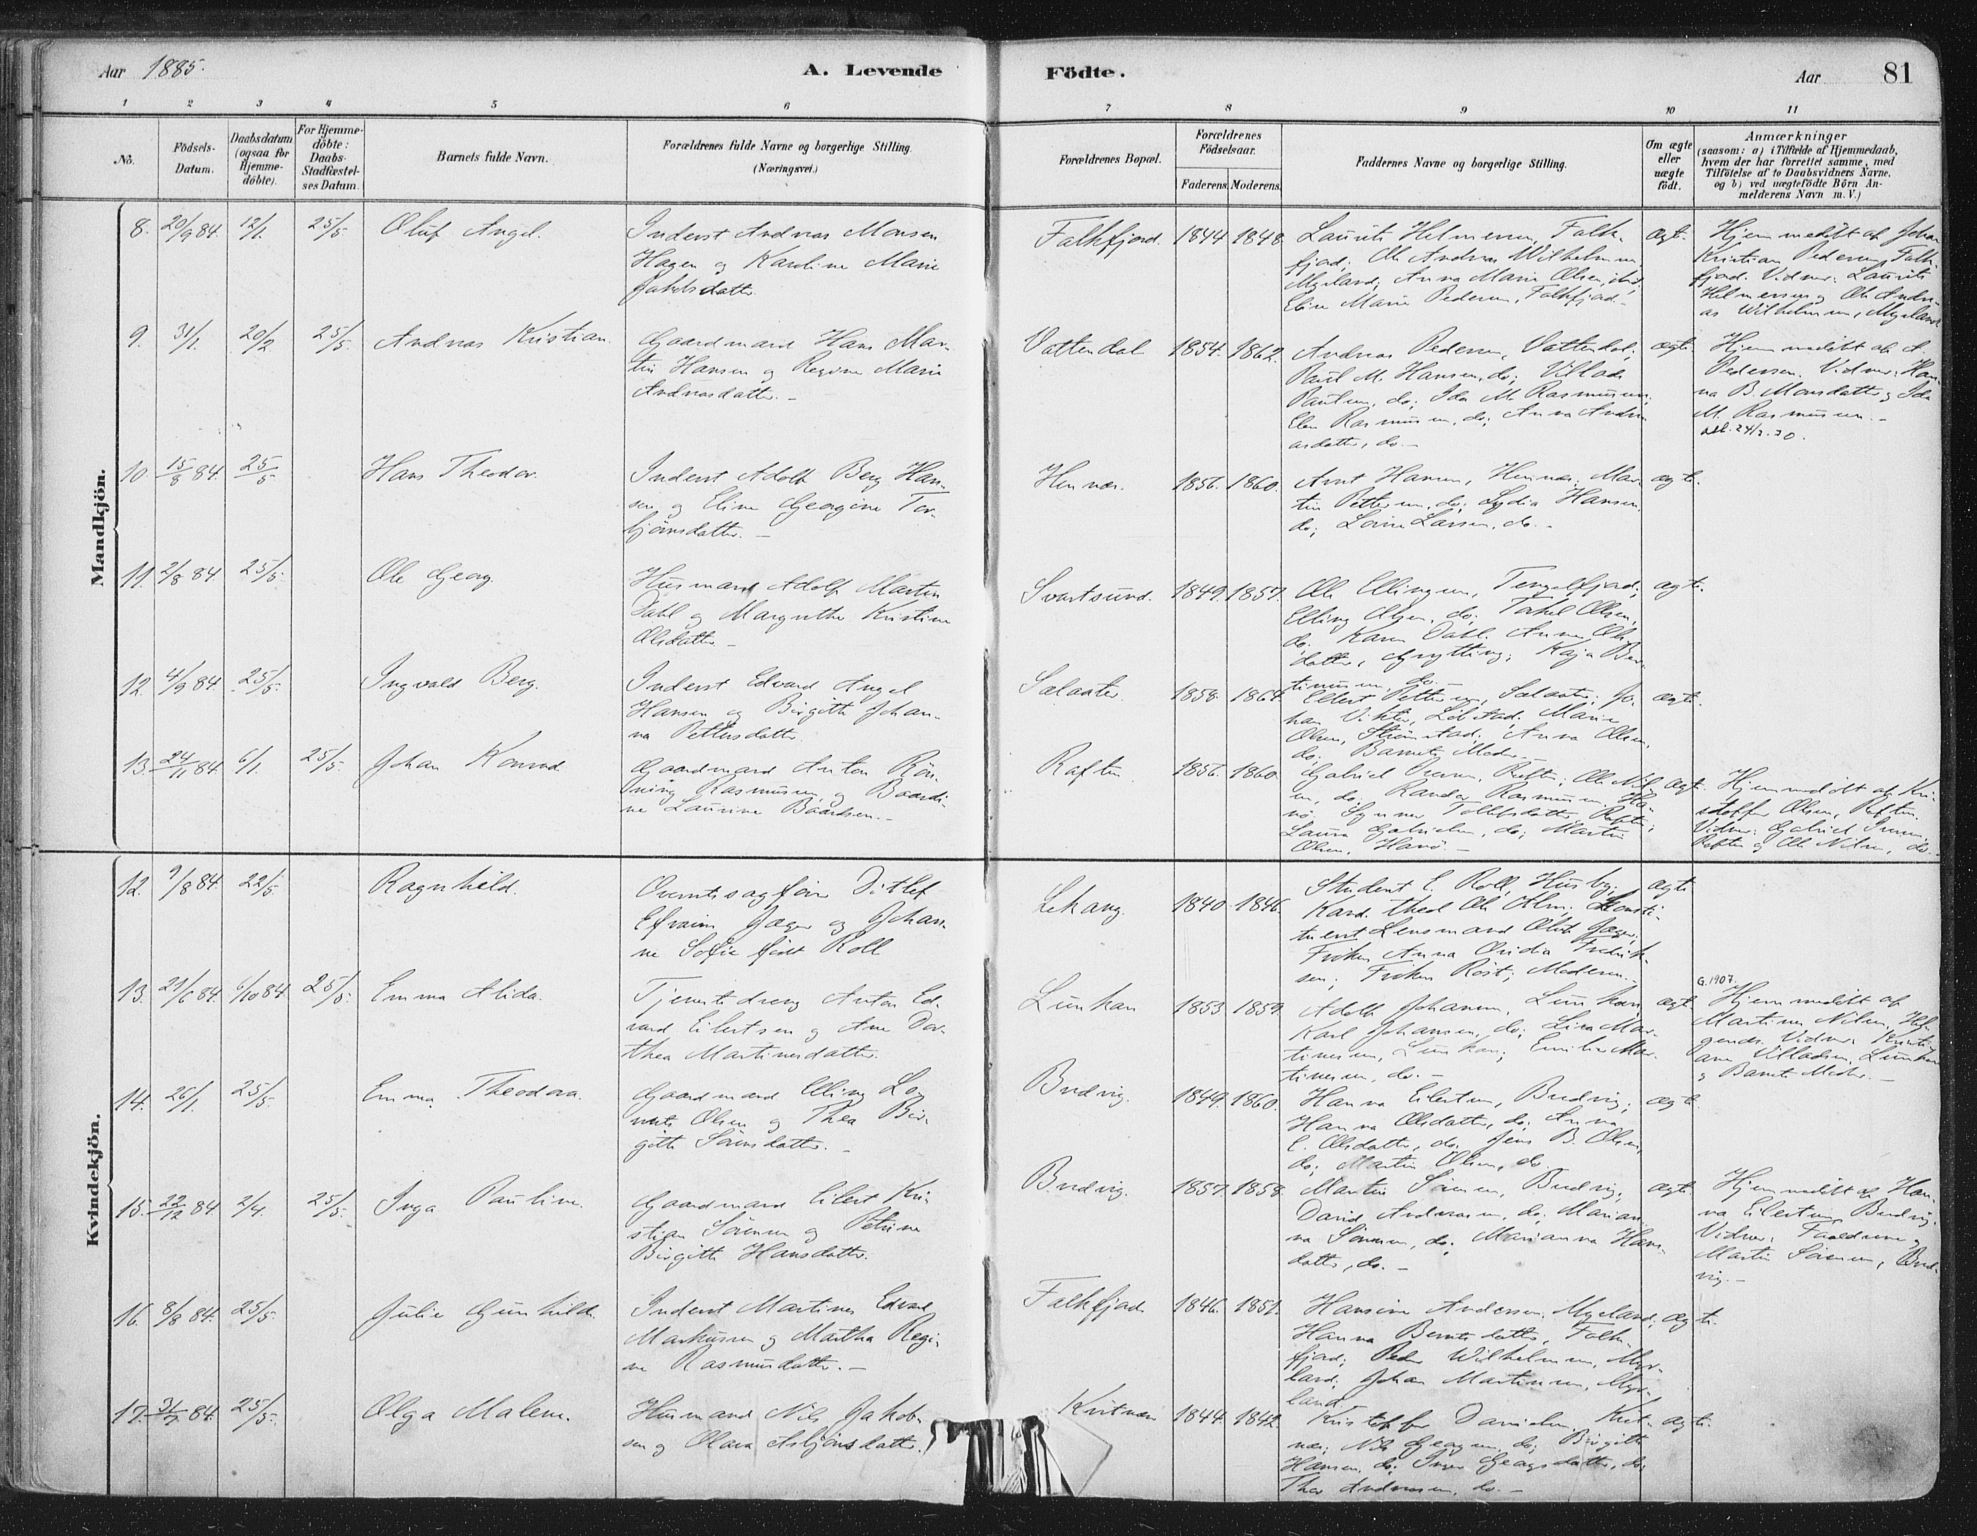 Aar 1885.
A. Levende
Födte.
Aar
81
1 2 3 4 5 6 7 8 9 10 11
No.
Födsels-
Datum.
Daabsdatum
(ogsaa for
Hjemme-
döbte).
For Hjemme-
döbte:
Daabs-
Stadfæstel-
ses Datum.
Barnets fulde Navn.
Forældrenes fulde Navne og borgerlige Stilling
(Næringsvei.)
Forældrenes Bopæl.
Forældrenes
Födselsaar.
Faderens. Moderens.
Faddernes Navne og borgerlige Stilling.
Om ægte
eller
uægte
födt.
Anmærkninger
(saasom: a) i Tilfælde af Hjemmedaab,
hvem der har forrettet samme, med
Tilföielse af to Daabsvidners Navne,
og b) ved uægtefödte Börn An-
melderens Navn m. V.)
Mandkjön.
8. 20/9 84. 12/1. 25/5. Oluf Angel.
Inderst Andreas Monsen
Hagen og Karoline Marie
Jakobsdatter
Falkfjord. 1844 1848.
Laurits Helmersen, Falk-
fjord; Ole Andreas Wilhelmsen
Myrland; Anna Marie Olsen, ibid;
Eline Marie Pedersen, Falkfjord.
ægt.
Hjemmedöbt af Johan
Kristian Pedersen, Falk-
fjord. Vidner: Laurits
Helmersen og Ole Andre-
as Wilhelmsen, Myrland
9. 31/1. 20/2 25/5. Andreas Kristian.
Gaardmand Hans Mar-
tin Hansen og Regine Marie
Andreasdatter.
Vattendal 1854. 1862.
Andreas Pedersen, Vattendal;
Paul M. Hansen, do; Villads
Paulsen, do; Ida M. Rasmussen;
Elen Rasmussen, do; Anna Andre-
asdatter, do.
ægt.
Hjemmedöbt af A.
Pedersen. Vidner: Han-
na B. Monsdatter og Ida
M. Rasmussen.
10. 15/8 84. 25/5 Hans Theodor.
Inderst Adolf Berg Han-
sen og Eline Georgine Tor-
björnsdatter.
Hennær. 1856. 1860.
Arnt Hansen, Hennær; Mar-
tin Pettersen, do; Lydia Hansen,
do; Lovise Larsen, do.
ægt.
11. 2/8 84. 25/5. Ole Georg.
Husmand Adolf Martin
Dahl og Margrethe Kristine
Olsdatter
Svartsund. 1849. 1857.
Ole Ellingsen, Tengelfjord;
Elling Olsen, do; Torkel Olsen,
do; Karen Dahl. Anne Ols-
datter, Grytting; Kaja Ber-
tinusen, do.
ægt.
12. 4/9 84. 25/5. Ingvald Berg.
Inderst Edvard Angel
Hansen og Birgitte Johan-
na Pettersdatter.
Sælaater 1858. 1864.
Eilert Pettersen, Sælaater; Jo-
han Vikter, Libstad; Marie
Olsen, Strömstad; Anna Olsen,
do; Barnets Moder.
ægt.
13. 24/11 84. 6/1. 25/5. Johan Konrad
Gaardmand Anton Rön-
ning Rasmussen og Baardi-
ne Laurine Baardsen.
Raften. 1856. 1860.
Gabriel Iversen, Raften; Ole Nil-
sen, do. Randor Rasmussen, Ha-
nö; Synnev Tollefsdatter, Raften;
Laura Gabrielsen, do; Martin
Olsen, Hanö.
ægt.
Hjemmedöbt af Kri-
stoffer Olsen, Raften.
Vidner: Gabriel Iversen,
Raften og Ole Nilsen, do.
Kvindekjön.
12. 9/8 84. 22/5. Ragnhild.
Overretssagförer Ditlef
Efraim Jager og Johan-
ne Sofie födt Roll
Lekang. 1840. 1846.
Student E. Roll, Husby;
Kand. theol Ole Alm; Konsti-
tueret Lensmand Oluf Jager;
Fröken Anna Ovidia Fredrik-
sen; Fröken Röst; Moderen.
ægt.
13. 21/6 84. 6/10 84. 25/5. Emma Alida.
Tjenestedreng Anton Ed-
vard Eilertsen og Ane Dor-
thea Martinesdatter.
Lunkan 1853. 1859.
Adolf Johansen, Lunkan;
Karl Johansen, do; Lina Mar-
tinesen, Lunkan; Emilie Mar-
tinesen, do.
ægt.
G.1907.
Hjemmedöbt af
Martines Nilsen,
Vidner: Kristi-
ane Villadsen, Lunkan
og Barnets Moder.
14. 26/1. 25/5. Emma Theodora.
Gaardmand Elling Lo-
rents Olsen og Thea Bir-
gitte Sörensdatter.
Budvig. 1849. 1860.
Hanna Eilertsen, Budvig;
Hanna Olsdatter, do; Anna
E. Olsdatter, do. Jens B. Olsen,
do; Martin Olsen, do
ægt.
15. 22/12 84. 2/4. 25/5. Inga Pauline.
Gaardmand Eilert Kri-
stian Sörensen og Petrine
Birgitte Hansdatter.
Budvig. 1857. 1858.
Martin Sörensen, Budvig;
David Andreasen, do; Marian-
na Sörensen, do; Marianna Hans-
datter, do.
ægt.
Hjemmedöbt af Han-
na Eilertsen, Budvig.
Vidner: Forældrene og
Martin Sörensen, Bud-
vig.
16. 8/8 84. 25/5. Julie Gunhilde.
Inderst Martines Edvard
Markussen og Martha Regi-
ne Rasmusdatter.
Falkfjord 1846. 1851.
Hansine Andersen, Myrland;
Hanna Berntsdatter, Falk-
fjord; Peder Wilhelmsen, Myr-
land; Johan Martinsen, Myr-
land.
ægt.
17. 31/7 84. 25/5. Olga Malene.
Husmand Nils Jakob-
sen og Olava Asbjörnsdatter.
Kvitnæs 1844. 1842.
Kristoffer Danielsen, Kvit-
næs; Nils Georgsen, do; Birgitte
Hansen, do; Inger Georgsdatter, do;
Thea Andreasen, do.
ægt.